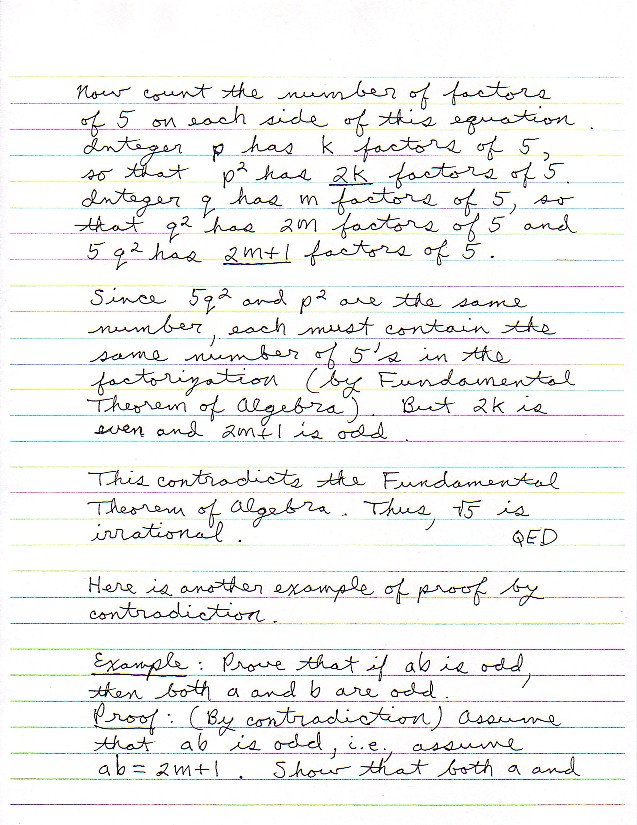 Now count the number of factors
of 5 on each side of this equation.
Integer p has k factors of 5,
so that p² has 2k factors of 5.
Integer q has m factors of 5, so
that q² has 2m factors of 5 and
5q² has 2m+1 factors of 5.
Since 5q² and p² are the same
number, each must contain the
same number of 5's in the
factorization (by Fundamental
Theorem of Algebra). But 2k is
even and 2m+1 is odd.
This contradicts the Fundamental
Theorem of Algebra. Thus, √5 is
irrational. QED
Here is another example of proof by
contradiction.
Example: Prove that if ab is odd,
then both a and b are odd.
Proof: (By contradiction) Assume
that ab is odd, i.e., assume
ab = 2m+1. Show that both a and